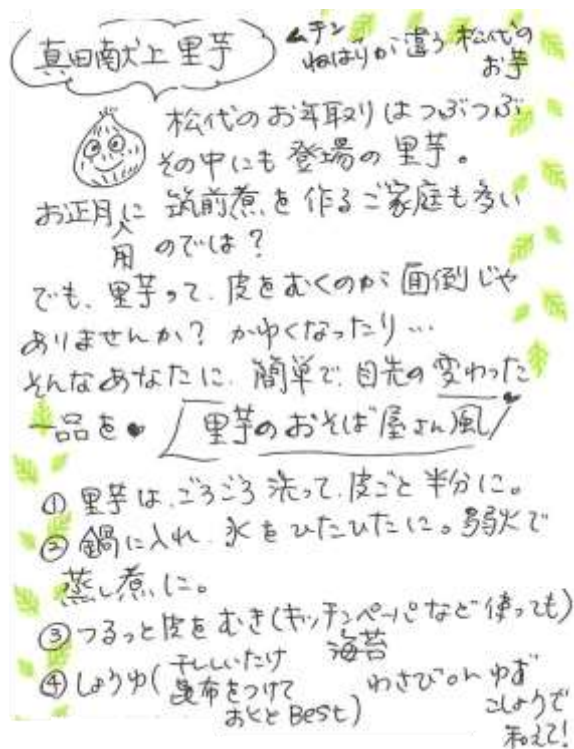 真田献上里芋
ムチン
ねばりが違う松代の
お芋
松代のお年取りはつぶつぶ
その中にも登場の里芋。
お正月用に 筑前煮を作るご家庭も多い
のでは?
でも、里芋って、皮をむくのが面倒じゃ
ありませんか? かゆくなったり…
そんなあなたに、簡単で、目先の変わった
一品を♥ 里芋のおそば屋さん風
① 里芋は、ごろごろ洗って、皮ごと半分に。
② 鍋に入れ、水をひたひたに。弱火で
蒸し煮に。
③ つるっと皮をむき(キッチンペーパーなど使っても)
④ しょうゆ(干ししいたけ
昆布をつけて
おくとBest)
海苔
わさび or ゆず
こしょうで
和えて!